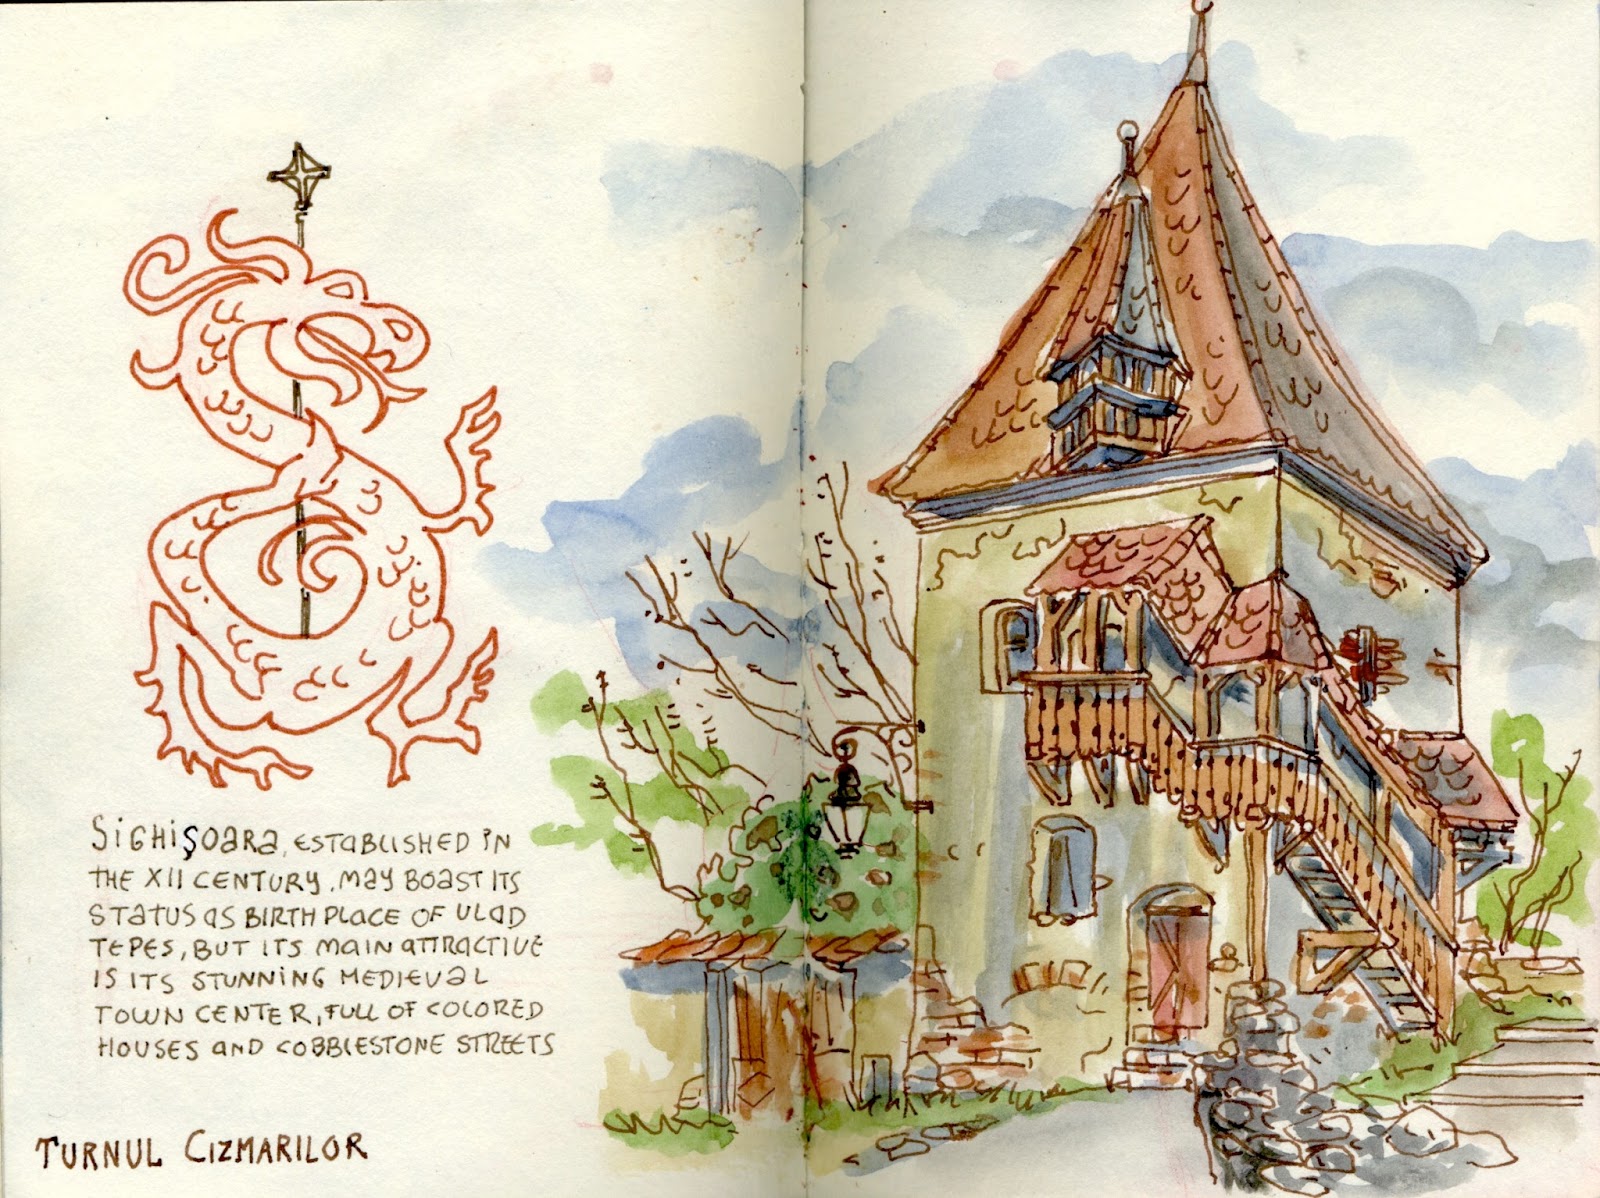 Sighişoara, established in
the XII century, may boast its
status as birth place of Vlad
Tepes, but its main attractive
is its stunning medieval
town center, full of colored
houses and cobblestone streets
Turnul Cizmarilor